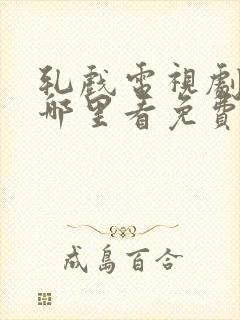 乳戲電視劇
哪里看免費
成島百合